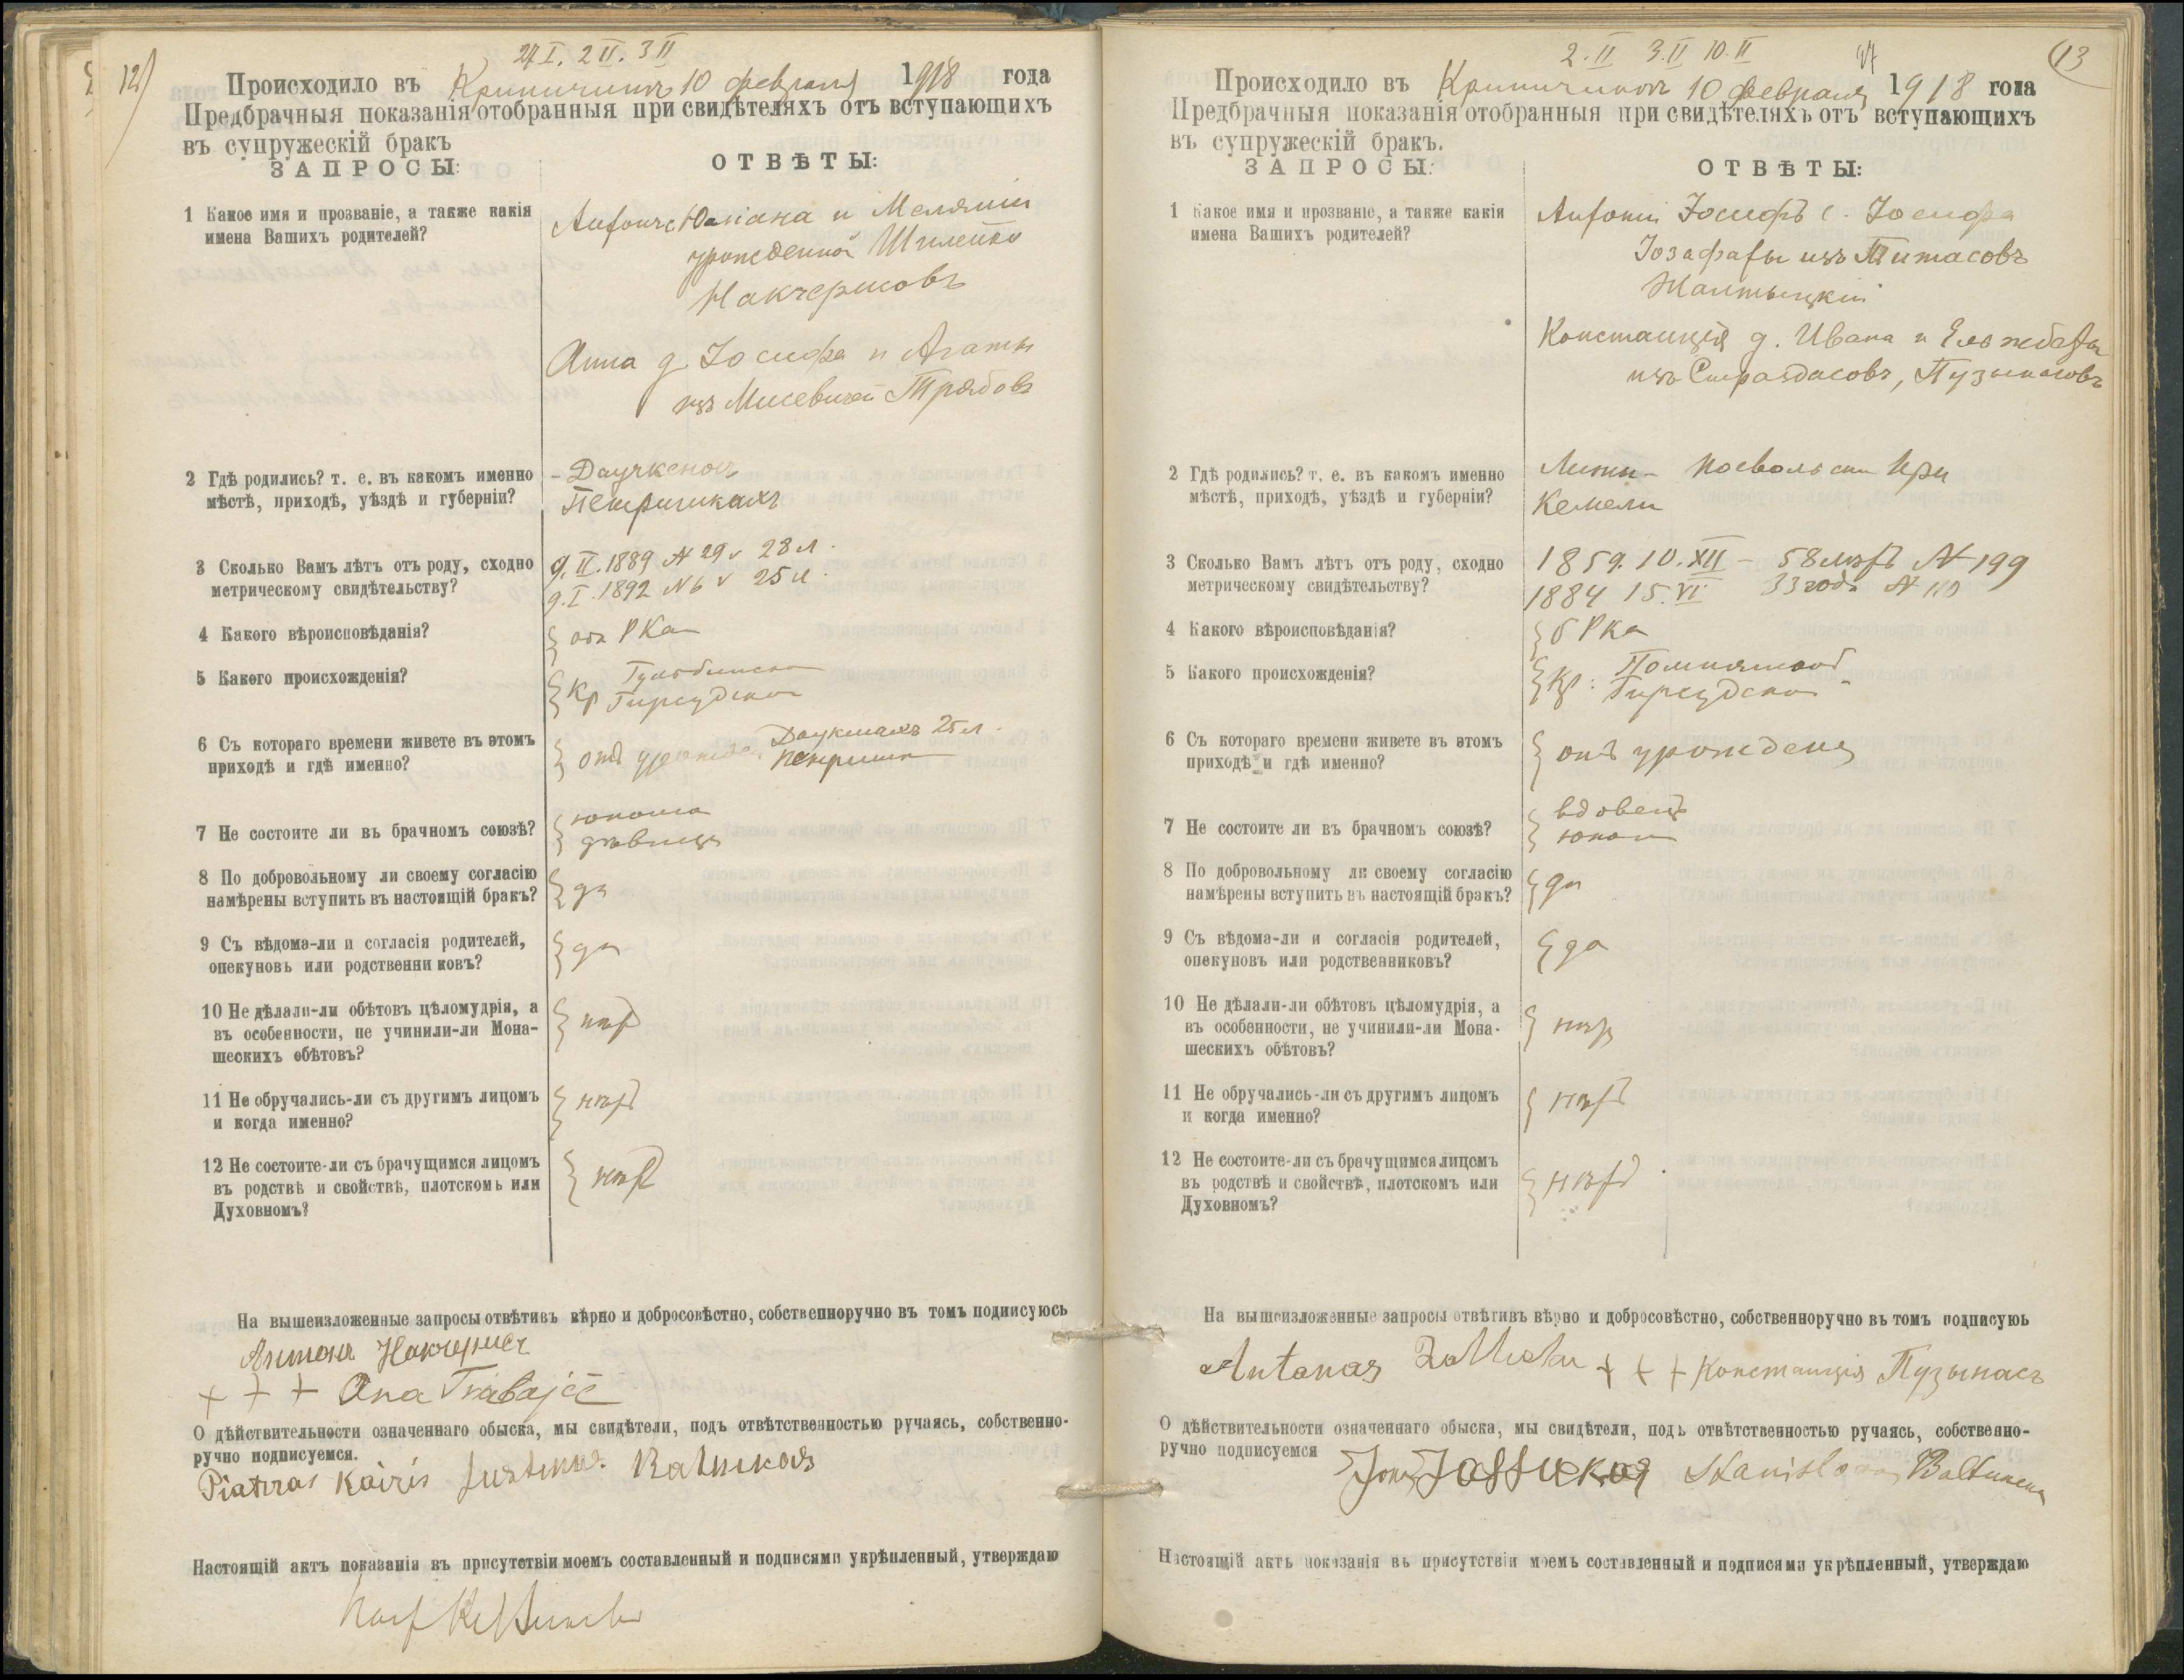 12)
27 I. 2 II. 3 II
Происходило въ Криничинъ 10 февраля 1918 года
Предбрачныя показанія отобранныя при свидѣтеляхъ отъ вступающихъ
въ супружескій бракъ
ЗАПРОСЫ:
ОТВѢТЫ:
1 Какое имя и прозваніе, а также какія
имена Вашихъ родителей?
Юліана и Меляніи
урожденной Шилейко
Накчерисовъ
Анна д. Іосифа и Агаты
изъ Мисевичей Трябовъ
2 Гдѣ родились? т. е. въ какомъ именно
мѣстѣ, приходѣ, уѣздѣ и губерніи?
Петришкахъ
3 Сколько Вамъ лѣтъ отъ роду, сходно
метрическому свидѣтельству?
9. II. 1889 № 29 v 28 л.
9. I. 1892 № 6 v 25 л.
4 Какого вѣроисповѣданія?
оба РКа
5 Какого происхожденія?
Кр Гирсудской
6 Съ котораго времени живете въ этомъ
приходѣ и гдѣ именно?
отъ урожде. 25 л.
7 Не состоите ли въ брачномъ союзѣ?
юноша
дѣвица
8 По добровольному ли своему согласію
намѣрены вступить въ настоящій бракъ?
да
9 Съ вѣдома-ли и согласія родителей,
опекуновъ или родственниковъ?
да
10 Не дѣлали-ли обѣтовъ цѣломудрія, а
въ особенности, не учинили-ли Мона-
шескихъ обѣтовъ?
нѣтъ
11 Не обручались-ли съ другимъ лицомъ
и когда именно?
нѣтъ
12 Не состоите-ли съ брачущимся лицомъ
въ родствѣ и свойствѣ, плотскомъ или
Духовномъ?
нѣтъ
На вышеизложенные запросы отвѣтивъ вѣрно и добросовѣстно, собственноручно въ томъ подписуюсь
Антонъ Накчерисъ
+ + + Ona Trabajčë
О дѣйствительности означеннаго обыска, мы свидѣтели, подъ отвѣтственностью ручаясь, собственно-
ручно подписуемся.
Piatras Kairis Justinas
Настоящій актъ показанія въ присутствіи моемъ составленный и подписями укрѣпленный, утверждаю
2. II 3. II 10. II
13
Происходило въ Криничинъ 10 февраля 1918 года
Предбрачныя показанія отобранныя при свидѣтеляхъ отъ вступающихъ
въ супружескій бракъ.
ЗАПРОСЫ:
ОТВѢТЫ:
1 Какое имя и прозваніе, а также какія
имена Вашихъ родителей?
Антоній Іосифъ с. Іосифа
Іозафаты изъ Титасовъ
Жалтыцкій
Констанція д. Ивана и Ельжбеты
изъ Страздасовъ, Пузынасовъ
2 Гдѣ родились? т. е. въ какомъ именно
мѣстѣ, приходѣ, уѣздѣ и губерніи?
Кемели
3 Сколько Вамъ лѣтъ отъ роду, сходно
метрическому свидѣтельству?
1859. 10. XII – 58 лѣтъ № 199
1884 15. VI 33 года № 110
4 Какого вѣроисповѣданія?
РКа
5 Какого происхожденія?
Кр: Гирсудской
6 Съ котораго времени живете въ этомъ
приходѣ и гдѣ именно?
отъ урожденія
7 Не состоите ли въ брачномъ союзѣ?
вдовецъ
8 По добровольному ли своему согласію
намѣрены вступить въ настоящій бракъ?
да
9 Съ вѣдома-ли и согласія родителей,
опекуновъ или родственниковъ?
да
10 Не дѣлали-ли обѣтовъ цѣломудрія, а
въ особенности, не учинили-ли Мона-
шескихъ обѣтовъ?
нѣтъ
11 Не обручались-ли съ другимъ лицомъ
и когда именно?
нѣтъ
12 Не состоите-ли съ брачущимся лицомъ
въ родствѣ и свойствѣ, плотскомъ или
Духовномъ?
нѣтъ
На вышеизложенные запросы отвѣтивъ вѣрно и добросовѣстно, собственноручно въ томъ подписуюь
Antanas + + + Констанція Пузынасъ
О дѣйствительности означеннаго обыска, мы свидѣтели, подъ отвѣтственностью ручаясь, собственно-
ручно подписуемся
Настоящій актъ показанія въ присутствіи моемъ составленный и подписями укрѣпленный, утверждаю